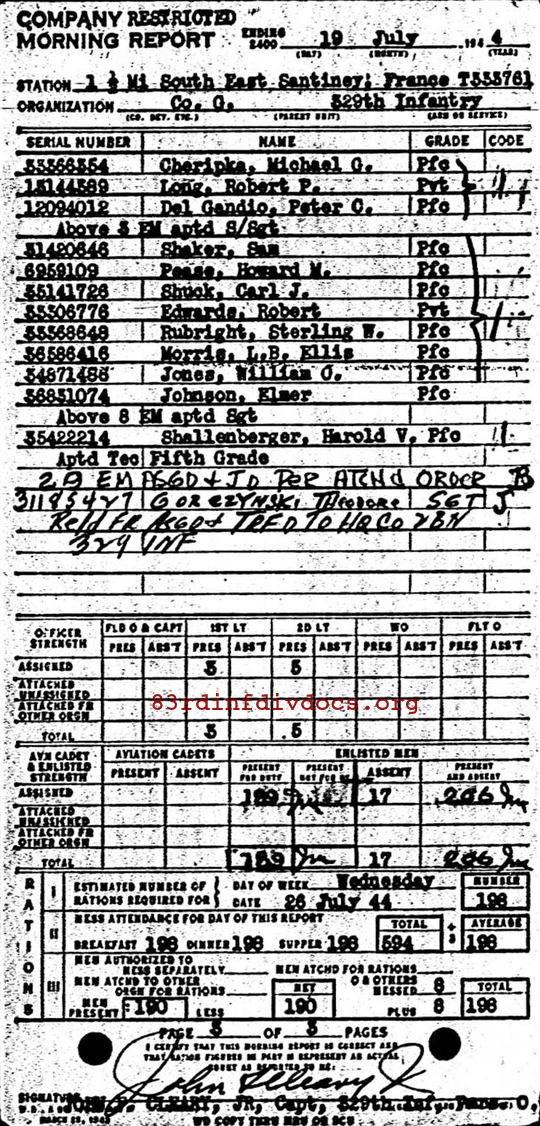 COMPANY RESTRICTED
MORNING REPORT ENDING 2400 19 July 1944
(DAY) (MONTH) (YEAR)
STATION 1 ½ Mi South East Santiney; France T333761
ORGANIZATION Co. G. 329th Infantry
(CO. DET. ETC.) (PARENT UNIT) (ARM OR SERVICE)
SERIAL NUMBER NAME GRADE CODE
33366354 Cheripka, Michael G. Pfc
13144389 Long, Robert P. Pvt
12094012 Del Gandio, Peter C. Pfc
Above 3 EM aptd S/Sgt
31420646 Shaker, Sam Pfc
6959109 Pease, Howard M. Pfc
35141726 Shuck, Carl J. Pfc
33306776 Edwards, Robert Pvt
33368648 Rubright, Sterling W. Pfc
36586416 Morris, L.B. Ellis Pfc
34871486 Jones, William O. Pfc
36831074 Johnson, Elmer Pfc
Above 8 EM aptd Sgt
35422214 Shallenberger, Harold V. Pfc
Aptd Tec Fifth Grade
EM ASGD & JD PER ATCHD ORDER
GORCZYNSKI THEODORE SGT
Reld FR ASGD & TRFD TO HQ CO 2BN
329 INF
OFFICER STRENGTH FLD O & CAPT 1ST LT 2D LT WO FLT O
PRES ABS'T PRES ABS'T PRES ABS'T PRES ABS'T PRES ABS'T
ASSIGNED 3 5
ATTACHED UNASSIGNED
ATTACHED FR OTHER ORGN
83rdinfdivdocs.org
TOTAL 3 5
AVN CADET & ENLISTED STRENGTH AVIATION CADETS ENLISTED MEN
PRESENT ABSENT PRESENT FOR DUTY PRESENT NOT FOR DUTY ABSENT PRESENT AND ABSENT
ASSIGNED 189 17 206
ATTACHED UNASSIGNED
ATTACHED FR OTHER ORGN
TOTAL 189 17 206
RATIONS
I ESTIMATED NUMBER OF RATIONS REQUIRED FOR DAY OF WEEK Wednesday NUMBER
DATE 26 July 44 198
II MESS ATTENDANCE FOR DAY OF THIS REPORT TOTAL ÷ 3 AVERAGE
BREAKFAST 198 DINNER 198 SUPPER 198 594 198
III MEN AUTHORIZED TO MESS SEPARATELY MEN ATCHD FOR RATIONS
MEN ATCHD TO OTHER ORGN FOR RATIONS NET O & OTHERS MESSED 8 TOTAL
MEN PRESENT 190 LESS 190 PLUS 8 198
PAGE 3 OF 3 PAGES
I CERTIFY THAT THIS MORNING REPORT IS CORRECT AND
THAT RATION FIGURES IN PART III REPRESENT AN ACTUAL
COUNT AS REPORTED TO ME:
SIGNATURE
JOHN F. CLEARY, JR, Capt, 329th Inf, Pers. O.
W.D., A.G.
MARCH 25, 1943
WD COPY THRU MRU OR SCU